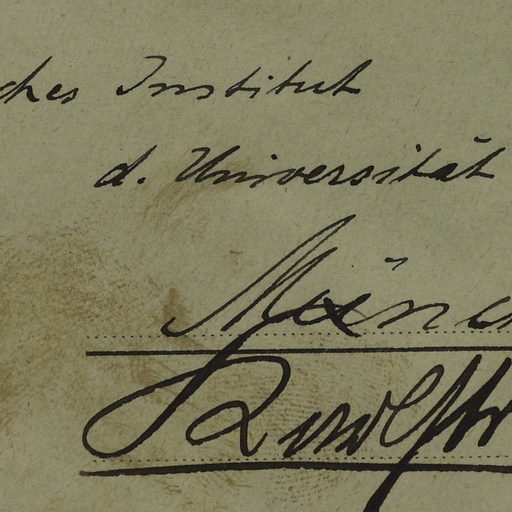 ches Institut
d. Universität
Münc